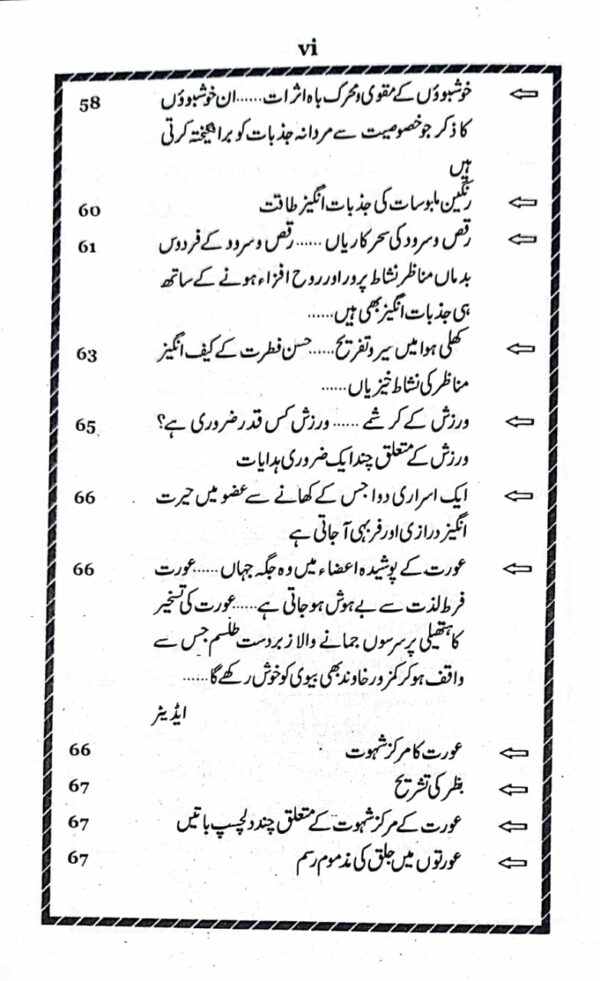 vi
⇦ خوشبوؤں کے مقوی و محرک باہ اثرات......ان خوشبوؤں 58
کا ذکر جو خصوصیت سے مردانہ جذبات کو برانگیختہ کرتی
ہیں
⇦ رنگین ملبوسات کی جذبات انگیز طاقت 60
⇦ رقص و سرود کی سحر کاریاں ...... رقص و سرود کے فردوس 61
بدماں مناظر نشاط پرور اور روح افزاء ہونے کے ساتھ
ہی جذبات انگیز بھی ہیں......
⇦ کھلی ہوا میں سیر و تفریح......حسن فطرت کے کیف انگیز 63
مناظر کی نشاط خیزیاں......
⇦ ورزش کے کرشمے ...... ورزش کس قدر ضروری ہے؟ 65
ورزش کے متعلق چند ایک ضروری ہدایات
⇦ ایک اسراری دوا جس کے کھانے سے عضو میں حیرت 66
انگیز درازی اور فربہی آ جاتی ہے
⇦ عورت کے پوشیدہ اعضاء میں وہ جگہ جہاں......عورت 66
فرط لذت سے بے ہوش ہو جاتی ہے......عورت کی تسخیر
کا ہتھیلی پر سرسوں جمانے والا زبردست طلسم جس سے
واقف ہو کر کمزور خاوند بھی بیوی کو خوش رکھے گا......
ایڈیٹر
⇦ عورت کا مرکز شہوت 66
⇦ بظر کی تشریح 67
⇦ عورت کے مرکز شہوت کے متعلق چند دلچسپ باتیں 67
⇦ عورتوں میں جلق کی مذموم رسم 67